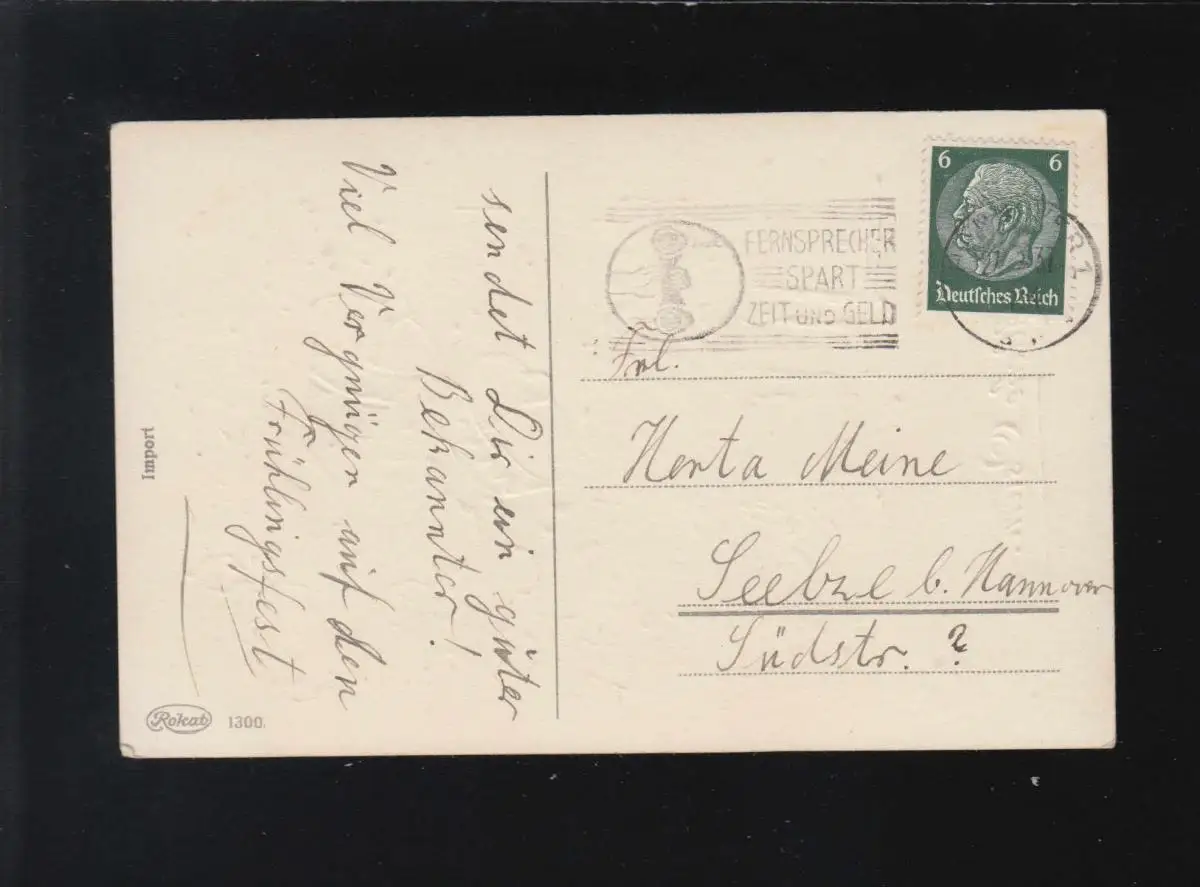 sendet Dir ein guter
Bekannter!
Viel Vergnügen auf den
Frühlingsfest
Import
Rokat 1300.
FERNSPRECHER
SPART
ZEIT UND GELD
6 6
Deutsches Reich
Frl.
Herta Meine
Seelze b. Hannover
Südstr. ?